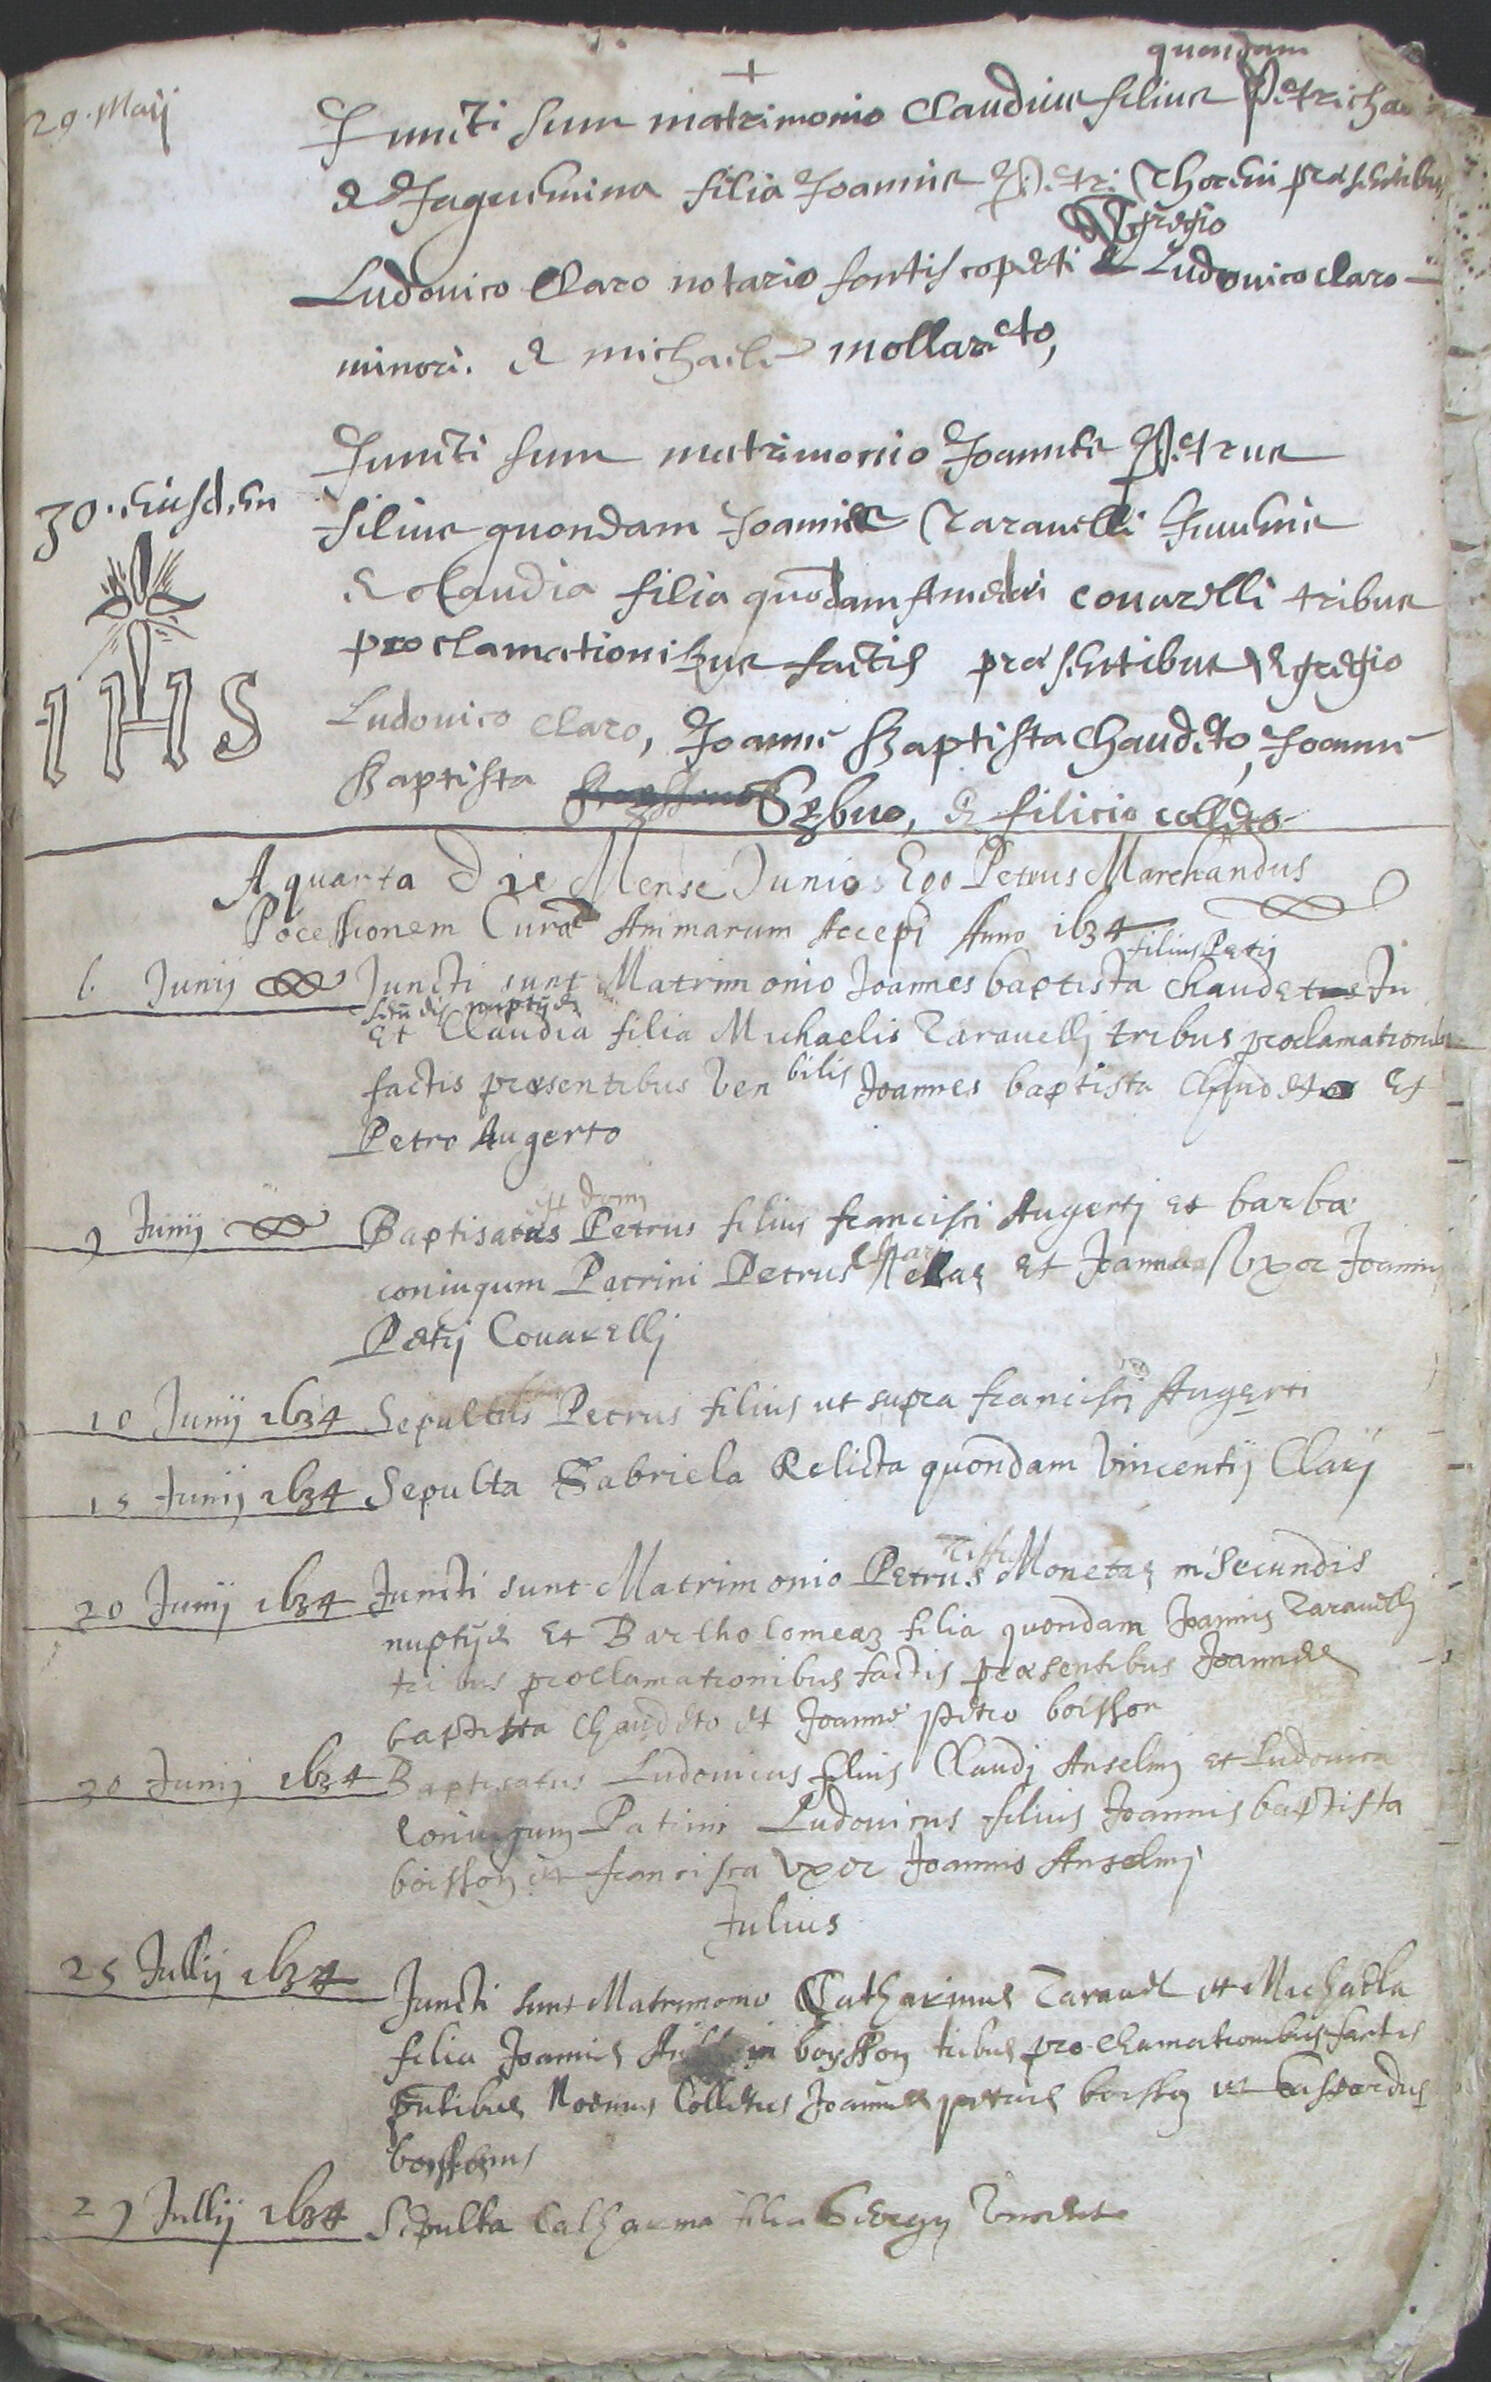 +
quondam
29. Maij Juncti sunt matrimonio Claudius filius Petri
& Jaquemina filia Joannis Petri Thoreni præsentibus
Egregio
Ludovico Claro notario fontis coperti & Ludovico Claro
minori. & Michaele Mollareto,
30. eiusdem Juncti sunt matrimonio Joannes Petrus
filius quondam Joannis Taravelli Juvenis
& Claudia filia quondam Amedei Covarelli tribus
proclamationibus factis præsentibus Egregio
IHS
Ludovico Claro, Joanne Baptista Chaudeto, Joanne
Baptista & filicio Colleto
A quarta Die Mense Junio Ego Petrus Marchandus
Pocessionem Curæ Animarum Accepi Anno 1634
filius Petri
6 Junij Juncti sunt Matrimonio Joannes baptista Chaudetus In
secundis nuptijs
Et Claudia filia Michaelis Taravellj tribus proclamationibus
factis præsentibus Venbilis Joannes baptista Chaudeto Et
Petro Augerto
et domi
9 Junij Baptisatus Petrus filius francisci Augertj et barbæ
coniugum Patrini Petrus et Joanna Uxor Joannis
Petrj Covarellj
10 Junij 1634 Sepultus Petrus filius ut supra francisci Augerti
15 Junij 1634 Sepulta Gabriela Relicta quondam Vincentij Clarj
20 Junij 1634 Juncti sunt Matrimonio Petrus Monetaz in Secundis
nuptijs Et Bartholomeaz filia quondam Joannis Taravellj
tribus proclamationibus factis præsentibus Joannes
baptista Chaudeto et Joanne petro boisson
30 Junij 1634 Baptisatus Ludovicus filius Claudj Anselmj et Ludovica
coniugum Patrini Ludovicus filius Joannis baptista
boisson et francisca Uxor Joannis Anselmj
Julius
25 Jullij 1634 Juncti sunt Matrimonio Catharinus Taravel et Michaela
filia Joannis boysson tribus proclamationibus factis
pntibus Colletus Joannes petrus boisson et
boyssonus
29 Jullij 1634 Sepulta Catharina filia Georgij